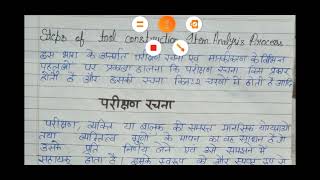 Steps of tool construction Item Analysis Process
इस भाग के अन्तर्गत परीक्षण रचना एवं मानकीकरण के विभिन्न
पहलुओं पर प्रकाश डालना कि परीक्षण रचना किस प्रकार
होती है और इसकी रचना किन-२ चरणों में होती है आदि
परीक्षण रचना
परीक्षण, व्यक्ति या बालक की समस्त मानसिक योग्यताओं
तथा व्यक्तित्व गुणों के मापन का वह साधन है जो
उसके प्रति निर्णय लेने एवं उसे समझने में
सहायक होता है। इसके स्वरूप को और स्पष्ट रूप से